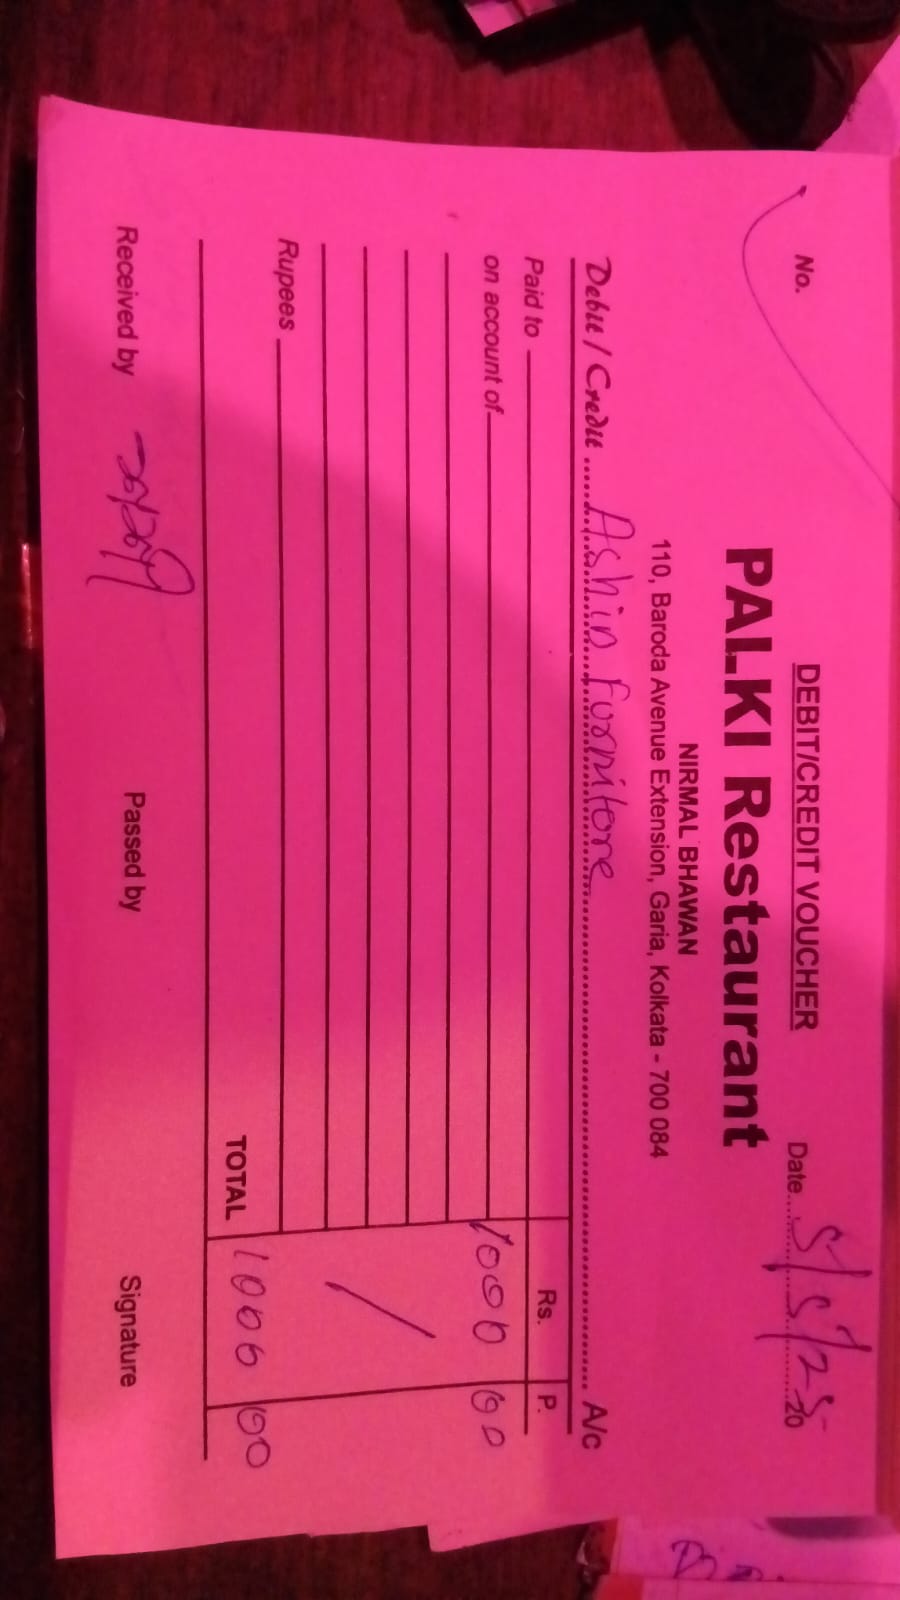 DEBIT/CREDIT VOUCHER
No.
Date 5/5/25 20
PALKI Restaurant
NIRMAL BHAWAN
110, Baroda Avenue Extension, Garia, Kolkata - 700 084
Debit / Credit Ashin Fornitore A/c
Paid to Rs. P.
on account of 1000 00
Rupees
TOTAL 1000 00
Received by
Passed by
Signature